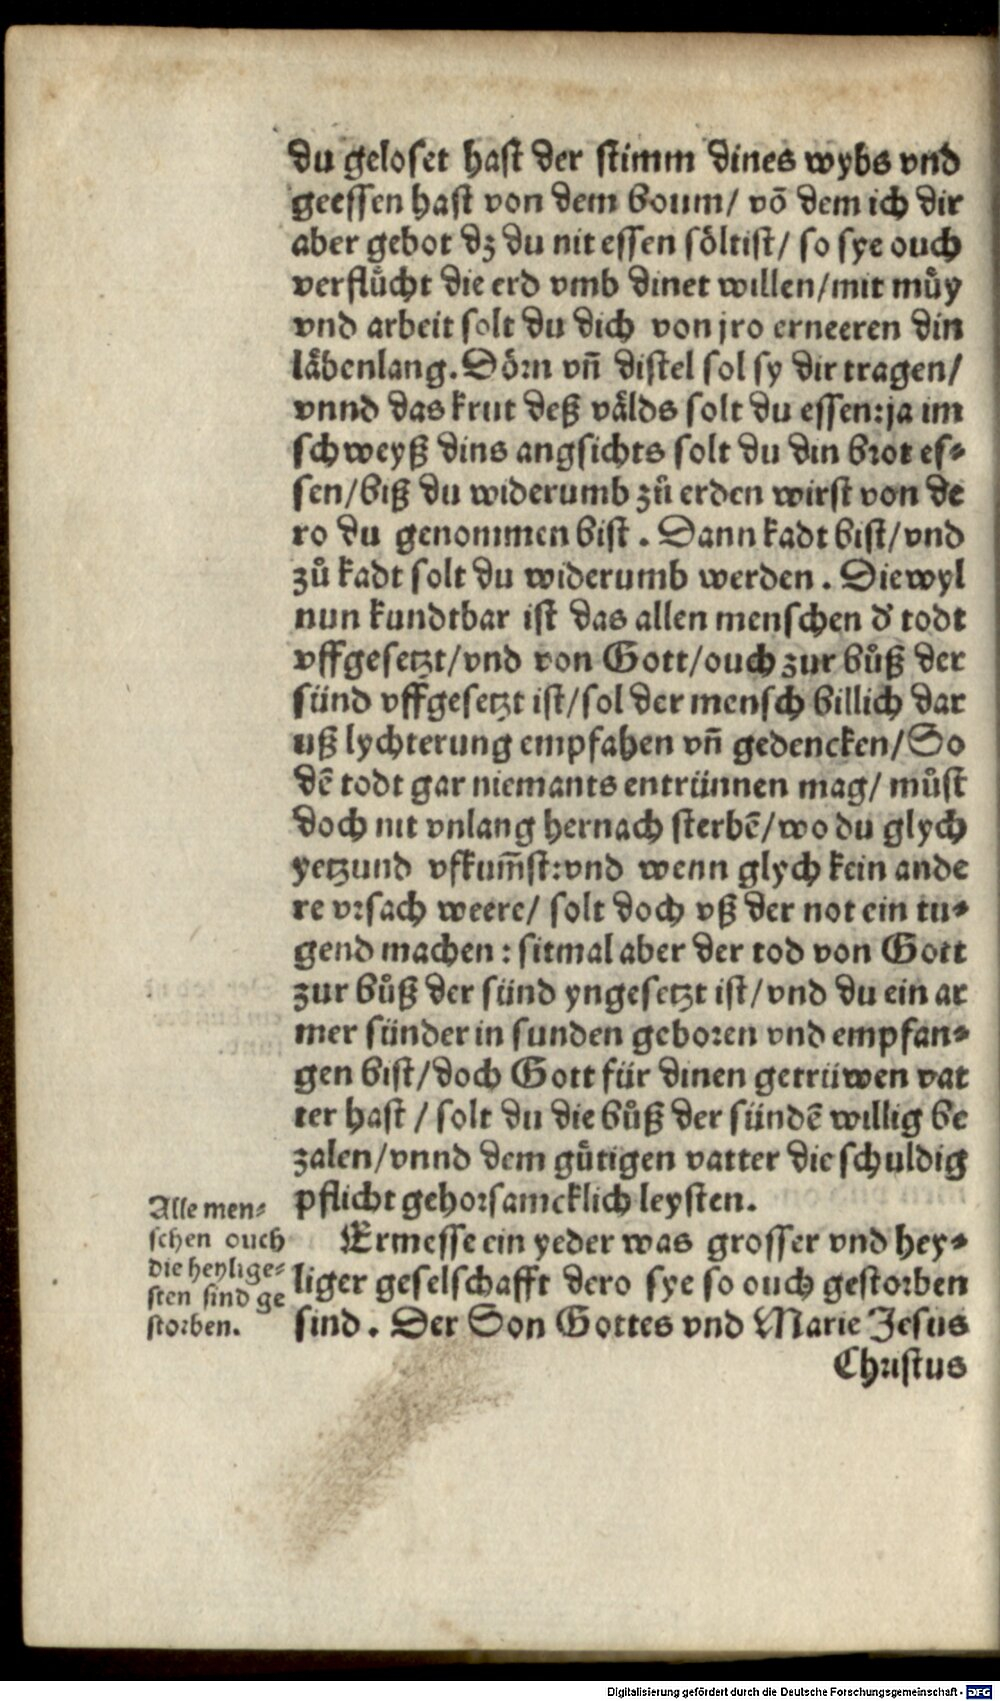 du geloset hast der stimm dines wybs vnd
geessen hast von dem boum/ võ dem ich dir
aber gebot dz du nit essen söltist/ so sye ouch
verflůcht die erd vmb dinet willen/mit můy
vnd arbeit solt du dich von jro erneeren din
läbenlang. Dörn vñ distel sol sy dir tragen/
vnnd das krut deß välds solt du essen: ja im
schweyß dins angsichts solt du din brot es⸗
sen/biß du widerumb zů erden wirst von de
ro du genommen bist. Dann kadt bist/vnd
zů kadt solt du widerumb werden. Diewyl
nun kundtbar ist das allen menschen d' todt
vffgesetzt/vnd von Gott/ouch zur bůß der
sünd vffgesetzt ist/sol der mensch billich dar
uß lychterung empfahen vñ gedencken/So
dẽ todt gar niemants entrünnen mag/ můst
doch nit vnlang hernach sterbẽ/wo du glych
yetzund vfkum̃st: vnd wenn glych kein ande
re vrsach weere/ solt doch vß der not ein tu⸗
gend machen: sitmal aber der tod von Gott
zur bůß der sünd yngesetzt ist/vnd du ein ar
mer sünder in sunden geboren vnd empfan⸗
gen bist/doch Gott für dinen getrüwen vat
ter hast/ solt du die bůß der sündẽ willig be
zalen/vnnd dem gůtigen vatter die schuldig
pflicht gehorsamcklich leysten.
Alle men⸗
schen ouch
die heylige⸗
sten sind ge
storben.
Ermesse ein yeder was grosser vnd hey⸗
liger geselschafft dero sye so ouch gestorben
sind. Der Son Gottes vnd Marie Jesus
Christus
Digitalisierung gefördert durch die Deutsche Forschungsgemeinschaft - DFG